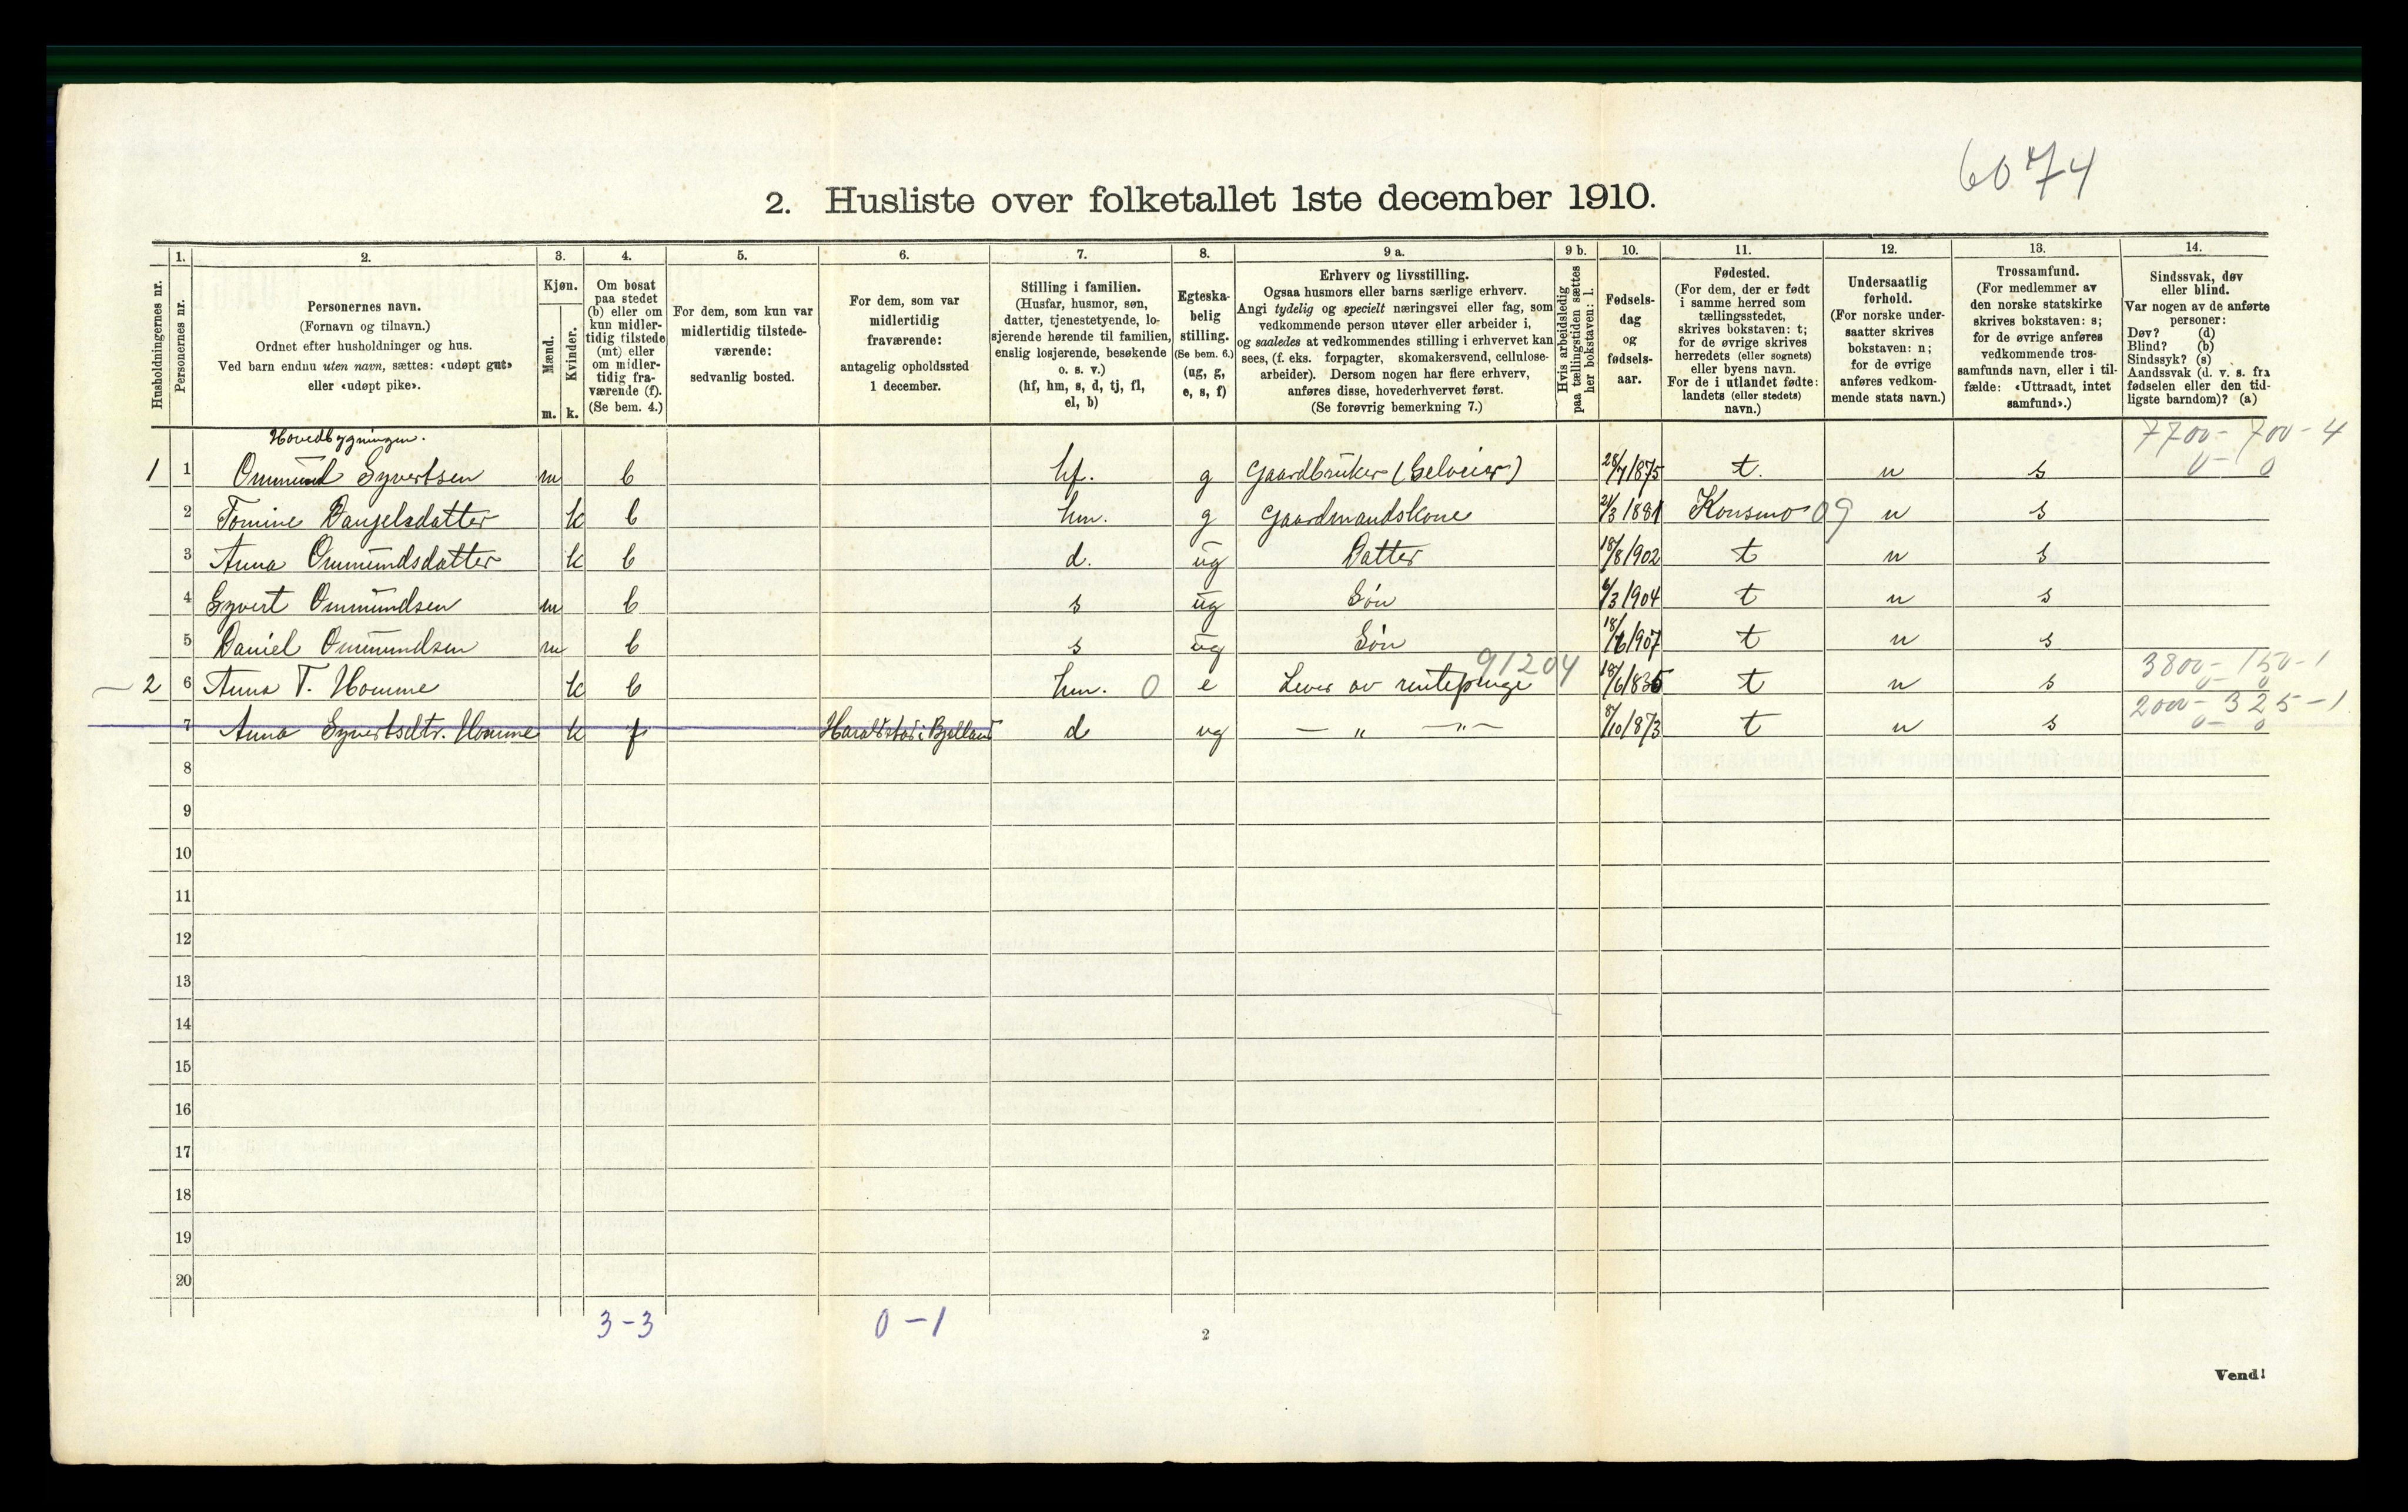 6074
2. Husliste over folketallet 1ste december 1910.
Husholdningernes nr.
1.
Personernes nr.
2.
Personernes navn.
(Fornavn og tilnavn.)
Ordnet efter husholdninger og hus.
Ved barn endnu uten navn, sættes: «udøpt gut»
eller «udøpt pike».
3.
Kjøn.
Mænd.
Kvinder.
m. k.
4.
Om bosat
paa stedet
(b) eller om
kun midler-
tidig tilstede
(mt) eller
om midler-
tidig fra-
værende (f).
(Se bem. 4.)
5.
For dem, som kun var
midlertidig tilstede-
værende:
sedvanlig bosted.
6.
For dem, som var
midlertidig
fraværende:
antagelig opholdssted
1 december.
7.
Stilling i familien.
(Husfar, husmor, søn,
datter, tjenestetyende, lo-
sjerende hørende til familien,
enslig losjerende, besøkende
o. s. v.)
(hf, hm, s, d, tj, fl,
el, b)
8.
Egteska-
belig
stilling.
(Se bem. 6.)
(ug, g,
e, s, f)
9 a.
Erhverv og livsstilling.
Ogsaa husmors eller barns særlige erhverv.
Angi tydelig og specielt næringsvei eller fag, som
vedkommende person utøver eller arbeider i,
og saaledes at vedkommendes stilling i erhvervet kan
sees, (f. eks. forpagter, skomakersvend, cellulose-
arbeider). Dersom nogen har flere erhverv,
anføres disse, hovederhvervet først.
(Se forøvrig bemerkning 7.)
9 b.
Hvis arbeidsledig
paa tællingstiden sættes
her bokstaven: l.
10.
Fødsels-
dag
og
fødsels-
aar.
11.
Fødested.
(For dem, der er født
i samme herred som
tællingsstedet,
skrives bokstaven: t;
for de øvrige skrives
herredets (eller sognets)
eller byens navn.
For de i utlandet fødte:
landets (eller stedets)
navn.)
12.
Undersaatlig
forhold.
(For norske under-
saatter skrives
bokstaven: n;
for de øvrige
anføres vedkom-
mende stats navn.)
13.
Trossamfund.
(For medlemmer av
den norske statskirke
skrives bokstaven: s;
for de øvrige anføres
vedkommende tros-
samfunds navn, eller i til-
fælde: «Uttraadt, intet
samfund».)
14.
Sindssvak, døv
eller blind.
Var nogen av de anførte
personer:
Døv? (d)
Blind? (b)
Sindssyk? (s)
Aandssvak (d. v. s. fra
fødselen eller den tid-
ligste barndom)? (a)
Hovedbygningen. 7700 - 700 - 4
1 1 Ommund Syvertsen m b hf. g Gaardbruker (Selveier) 28/7 1875 t. n s 0 - 0
2 Tomine Danjelsdatter k b hm. g Gaardmandskone 21/3 1881 Konsmo 09 n s
3 Anna Ommundsdatter k b d. ug Datter 18/8 1902 t n s
4 Syvert Ommundsen m b s ug Søn 6/3 1904 t n s
5 Daniel Ommundsen m b s ug Søn 18/6 1907 t n s
91204 3800 - 150 - 1
2 6 Anna T. Homme k b hm. 0 e Lever av rentepenge 18/6 1835 t n s 0 - 0
2000 - 325 - 1
7 Anna Syvertsdtr. Homme k f Haraldstad i Bjelland d ug — „ — „ — 8/10 1873 t n s 0 - 0
8
9
10
11
12
13
14
15
16
17
18
19
20
3 - 3 0 - 1
2
Vend!